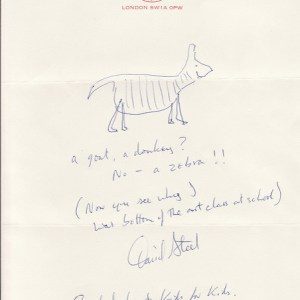 LONDON SW1A 0PW
a goat, a donkey?
No - a zebra!!
(Now you see why I
was bottom of the art class at school)
David Steel
Kids for Kids.